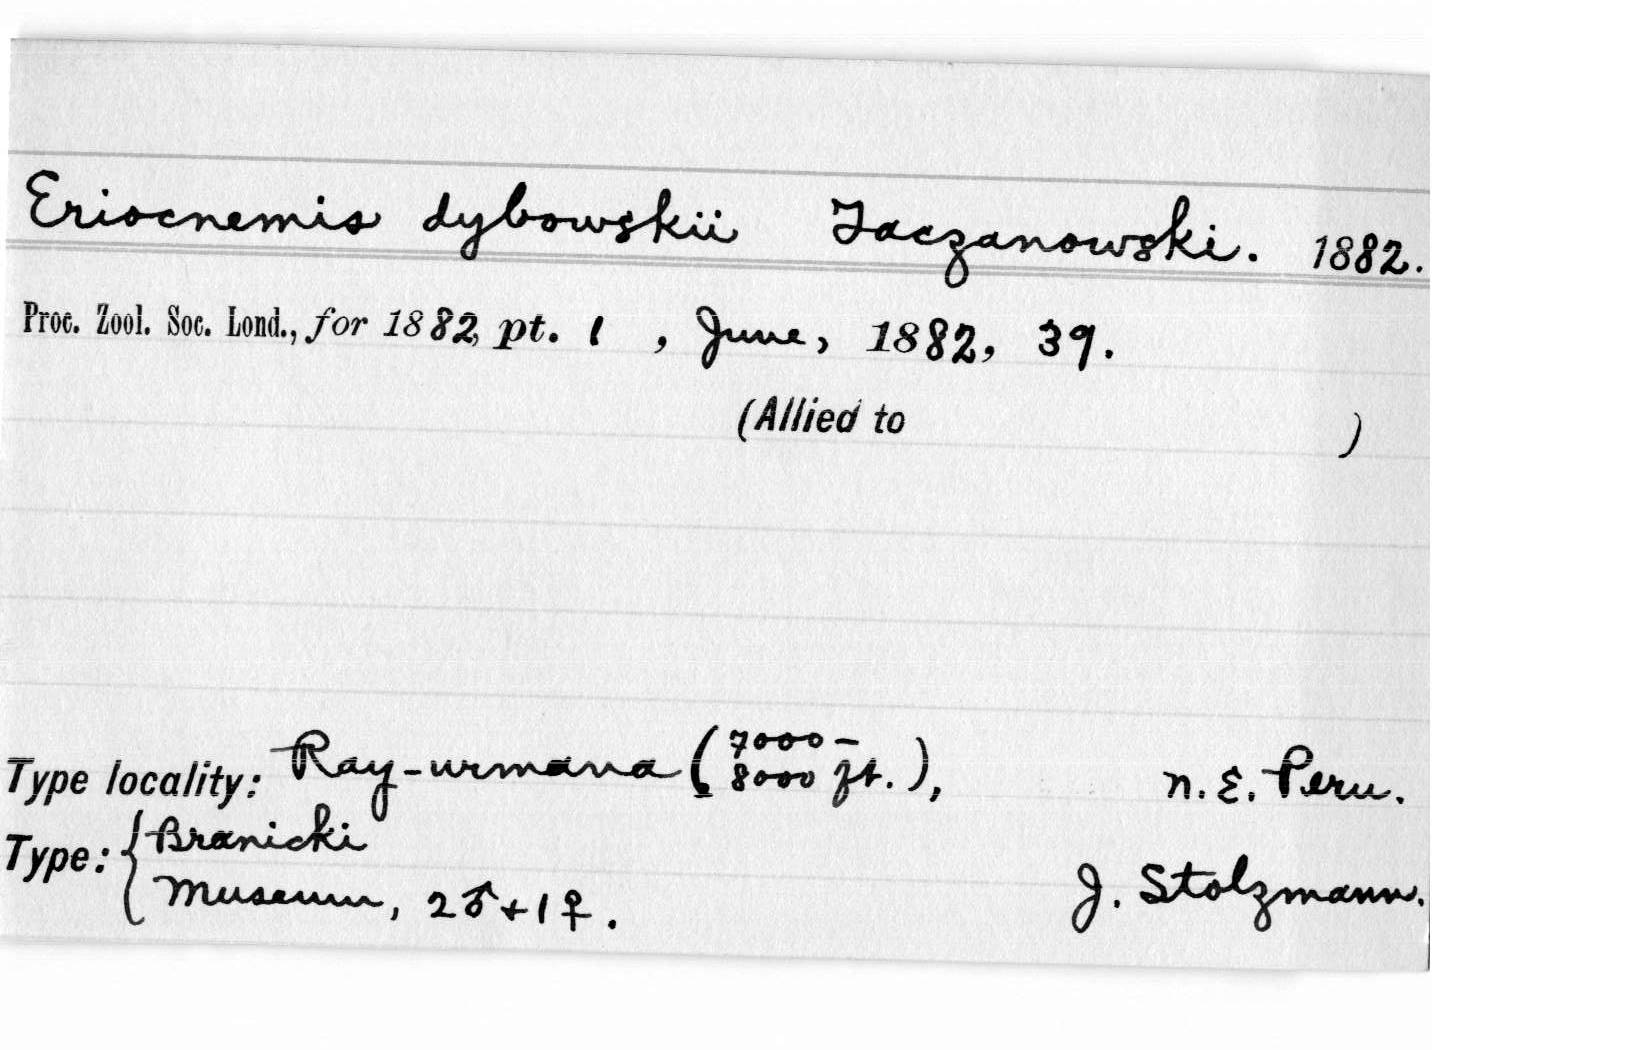 Eriocnemis dybowskii Taczanowski. 1882.
Proc. Zool. Soc. Lond., for 1882, pt. 1, June, 1882, 39.
(Allied to )
Type locality: Ray-urmana (7000-8000 ft.), n. E. Peru.
Type: { Branicki
Museum, 2♂+1♀. J. Stolzmann.